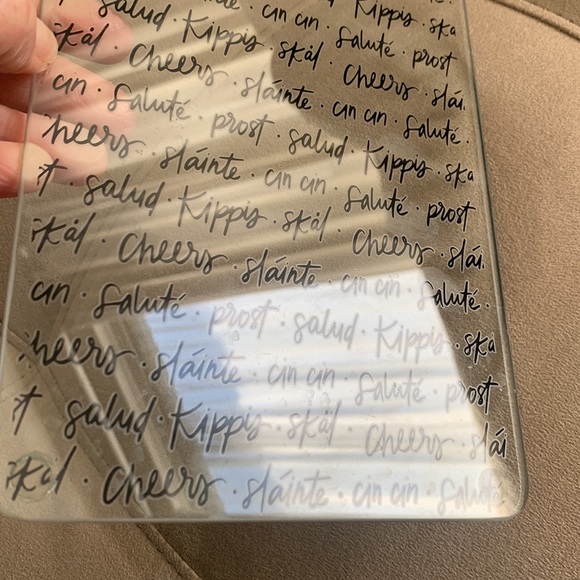 salud · Kippis · ska
skål · Kippis · skål · Saluté · prost
cin · Cheers · sláinte · Cheers · slái
Saluté · prost · cin cin · Saluté ·
heers · sláinte · salud · Kippis · ska
t · salud · cin cin · Saluté · prost
skål · Kippis · skål · Cheers · slái
cin · Cheers · sláinte · cin cin · Saluté ·
Saluté · prost · salud · Kippis · ska
heers · sláinte · cin cin · Saluté · prost
t · salud · Kippis · skål · Cheers · slái
skål · Cheers · sláinte · cin cin · Saluté